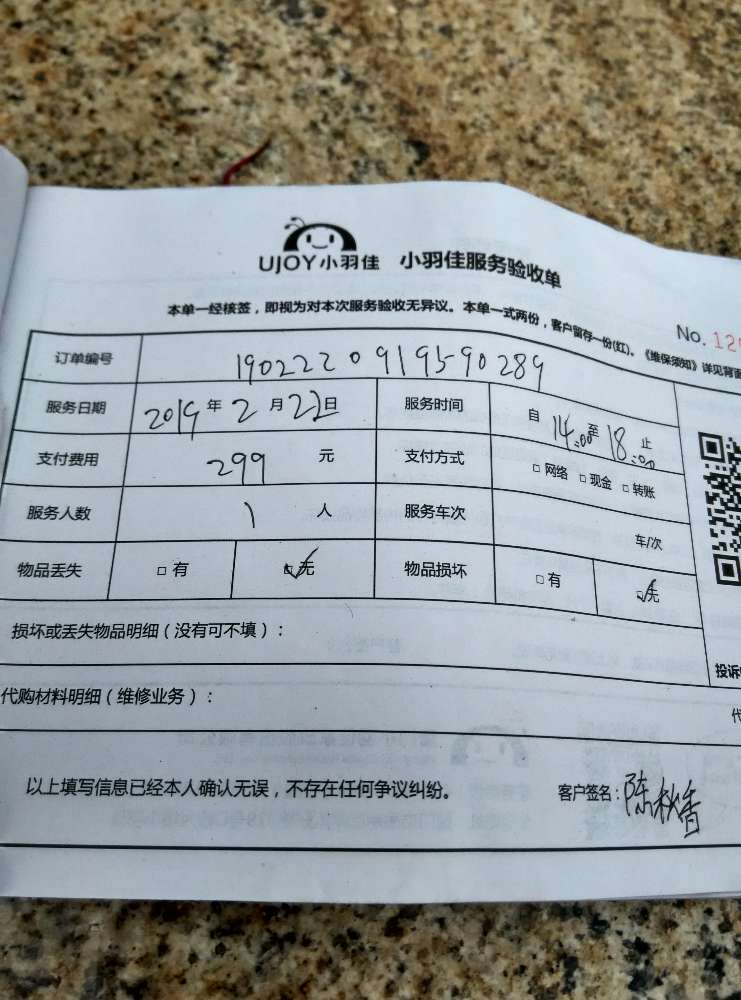 UJOY小羽佳 小羽佳服务验收单
本单一经核签，即视为对本次服务验收无异议。本单一式两份，客户留存一份(红)。《维保须知》详见背面
No. 120
订单编号 1902220919590289
服务日期 2019年2月22日 服务时间 自14:00至18:00止
支付费用 299元 支付方式 □网络 □现金 □转账
服务人数 1人 服务车次 车/次
物品丢失 □有 ☑无 物品损坏 □有 ☑无
损坏或丢失物品明细（没有可不填）：
投诉
代购材料明细（维修业务）：
代
以上填写信息已经本人确认无误，不存在任何争议纠纷。 客户签名：陈秋香